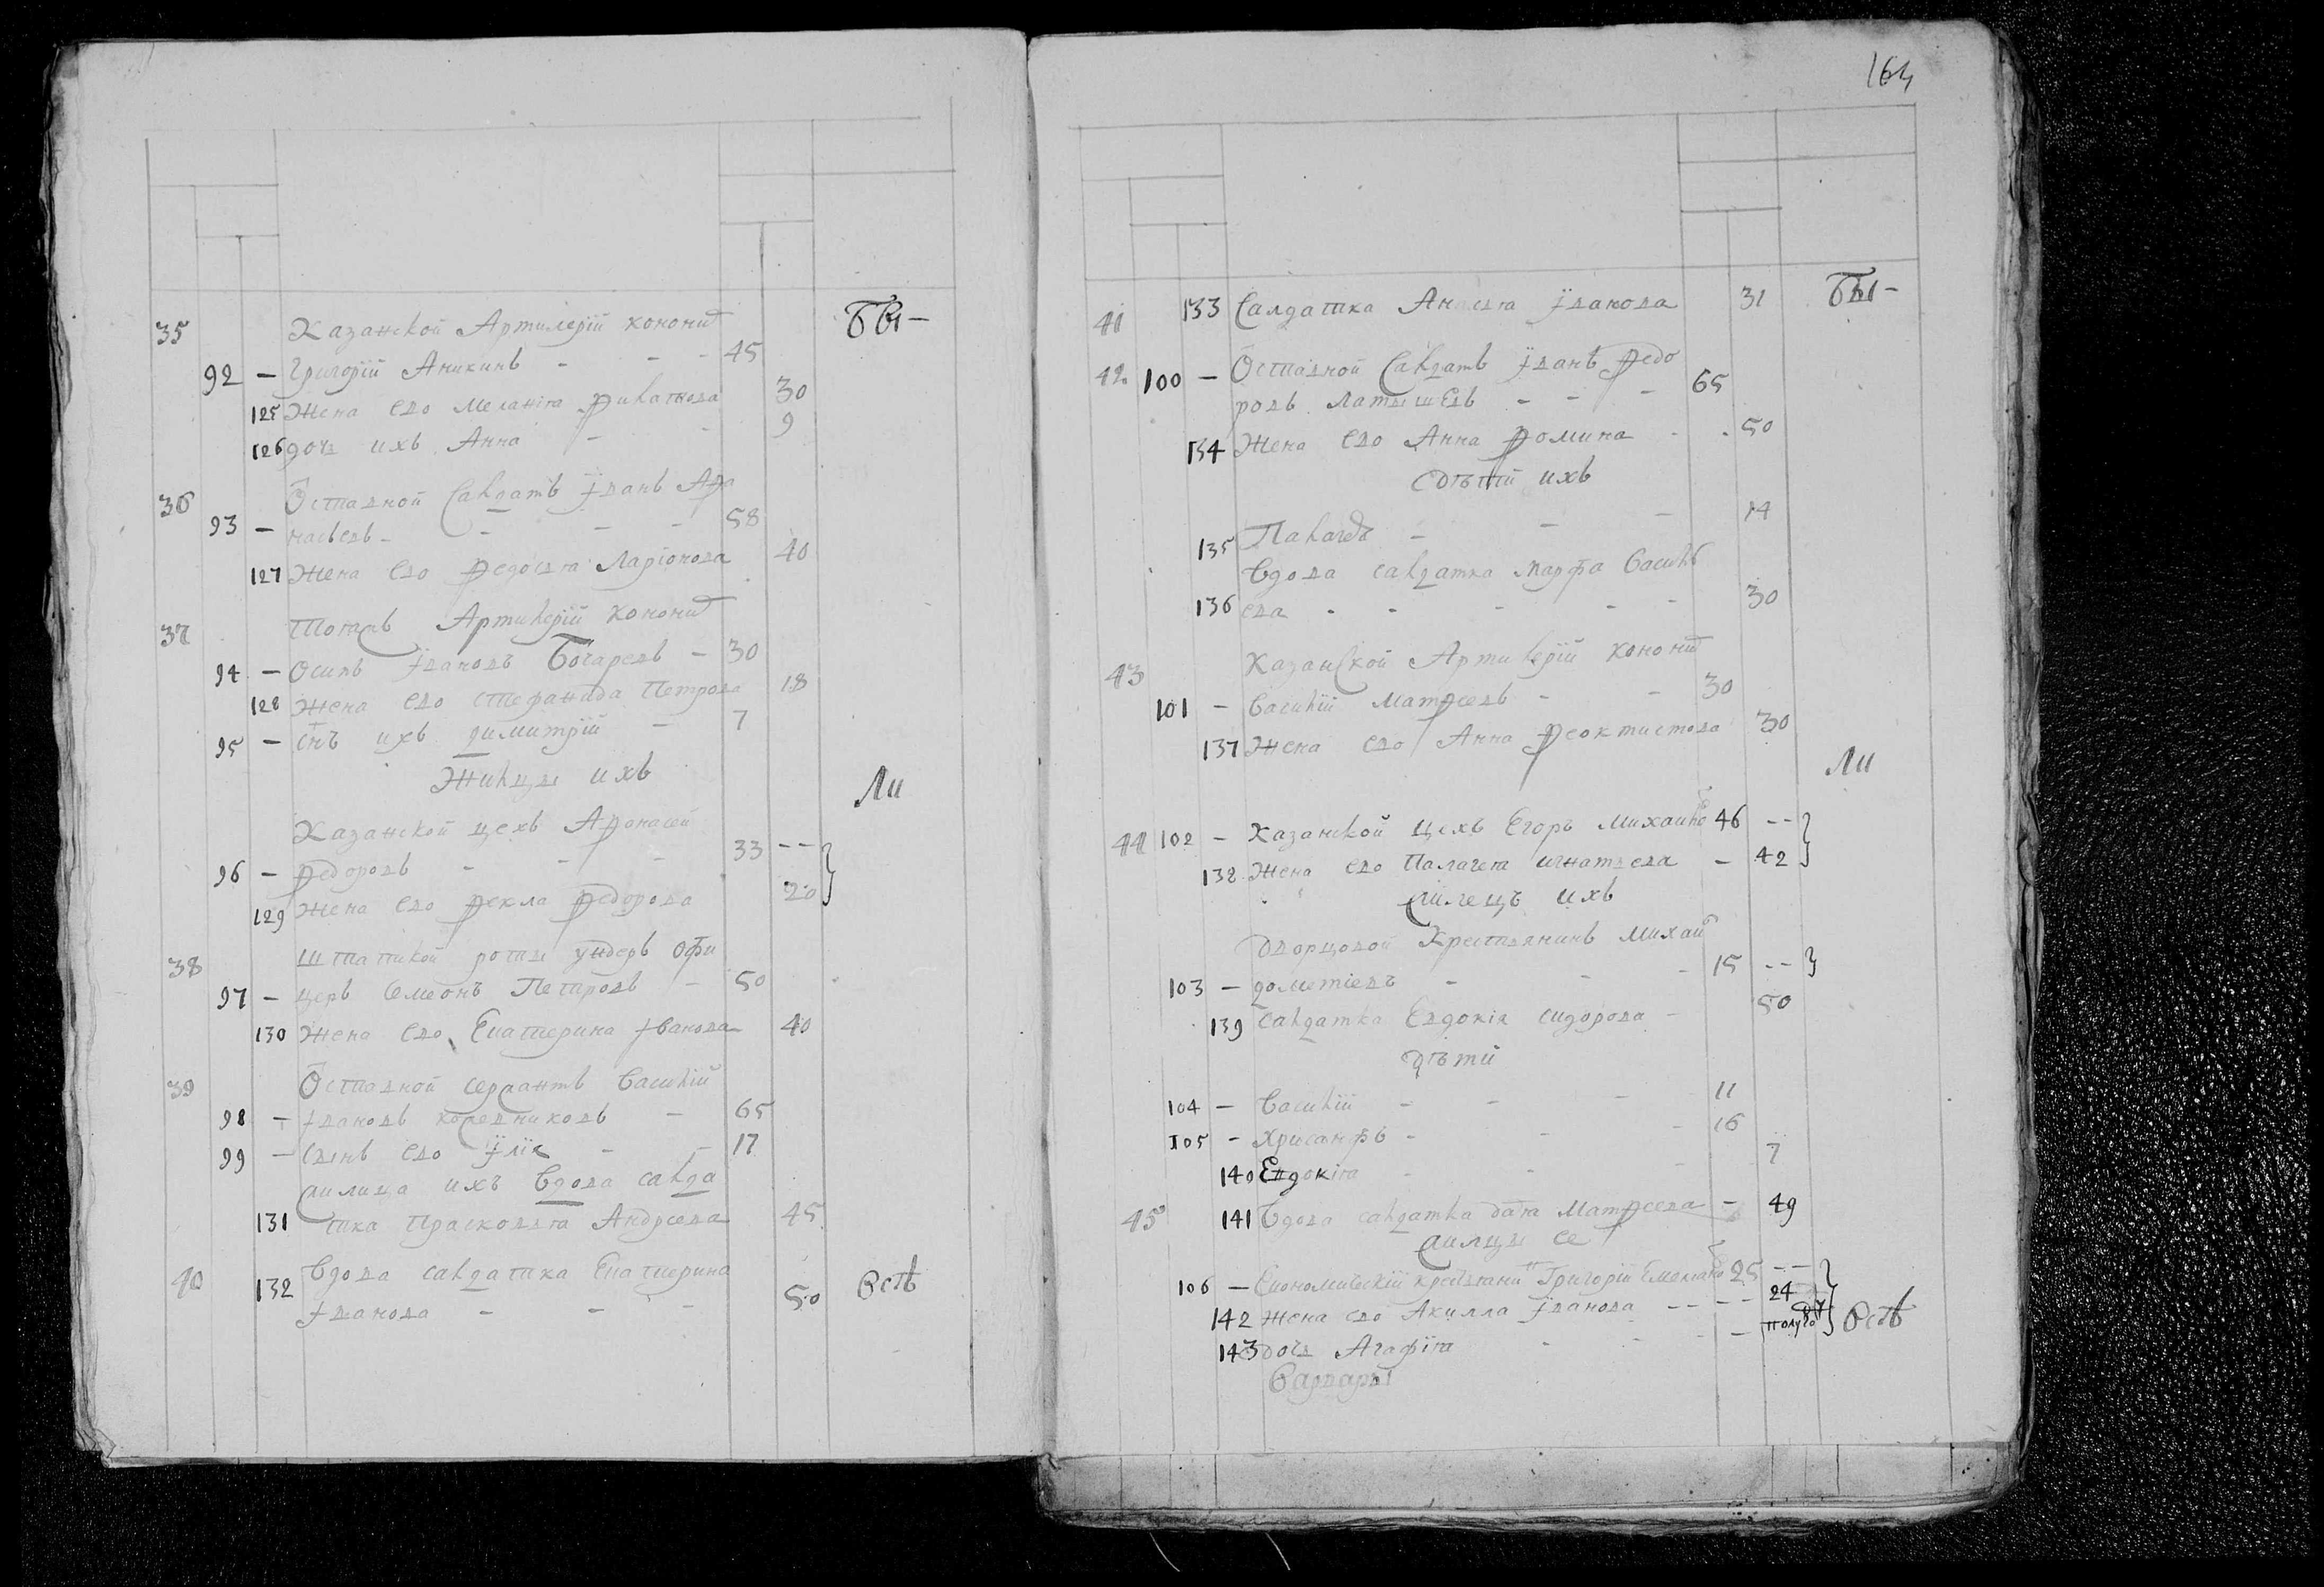 35 Казанской Артилерїи канонир Бы-
92 — Григорїй Аникинъ - - - 45
125 Жена ево Меланїя Филатова 30
126 дочь ихъ Анна - - 9
36 Отставной Салдатъ Іванъ Афа
93 — насьевъ - - - - 58
127 Жена ево Федосья Ларїонова 40
37 Артилерїи канонир
94 — Осипъ Івановъ Бочаревъ - 30
128 Жена ево Стефанида Петрова 18
95 — Снъ ихъ димитрїй - 7
Жильцы ихъ Ли
Казанской цехъ Афонасей
96 — Федоровъ - - - 33 --
129 Жена ево Фекла Федорова 20
38 штатской роты ундеръ офи
97 — церъ Семеонъ Петровъ - 50
130 Жена ево Екатерина Іванова 40
39 Отставной сержантъ Василїй
98 — Івановъ - 65
99 — Сынъ ево Ілїя - - 17
ихъ вдова салда
131 тка Прасковья Андреева 45
40 132 Вдова салдатка Екатерина
Іванова - - - 50 Есть
164
41 133 Салдатка Іванова 31 Бы-
42 100 — Отставной Салдатъ Іванъ Федо
ровъ Латышевъ - - - 65
134 Жена ево Анна Фомина - - 50
дѣти ихъ
135 - - - 14
Вдова салдатка Марфа Василь
136 ева - - - - - 30
43 Казанской Артилерїи канонир
101 — Василїй Матфеевъ - - 30
137 Жена ево Анна Феоктистова 30
Ли
44 102 — Казанской цехъ Егоръ Михаило 46 --
138 Жена ево Палагея игнатьева - 42
жилецъ ихъ
Дворцовой Крестьянинъ Михаи
103 — дометїевъ - - - 15 --
139 Салдатка Евдокїя сидорова - 50
дѣти
104 — Василїй - - - 11
105 — Хрисанфъ - - - 16
140 Евдокїя - - - 7
45 141 Вдова салдатка Матфеева - 49
жилцы ее
106 — Економическїй крестьянин Григорїй Емельяно 25 --
142 Жена ево Акилла Іванова -- -- 24
143 дочь Агафїя - - - - полуго Есть
Варвары